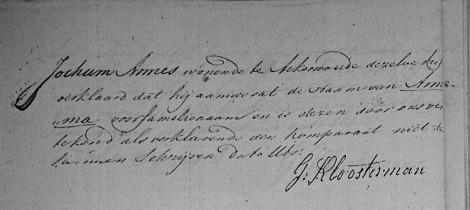 Jochum Annes wonende te Akkerwoude dezelve
verklaard dat hij aanneemt de Naam van Anne=
ma voor familienaam en is dezen door ons ver
tekend als verklarende den komparant niet te
kunnen Schrijven dato Uts:
G: Kloosterman